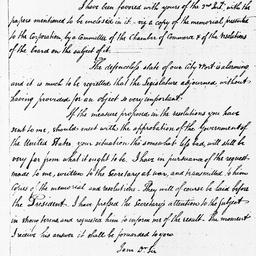 I have been favored with yours of the 2nd Inst. with the
papers mentioned to be inclosed in it - viz a copy of the memorial presented
to the Corporation, by a Committee of the Chamber of Commerce & of the resolutions
of the board on the subject of it.
The defenceless state of our city & Port is alarming
and it is much to be regretted that the Legislature adjourned, without
having provided for an object so very important.
If the measure proposed in the resolutions you have
sent to me, should meet with the approbation of the Government of
the United States your situation tho somewhat less bad, will still be
very far from what it ought to be. I have in pursuance of the request
made to me, written to the Secretary at war, and transmitted to him
Copies of the memorial and resolutions. They will of course be laid before
the President. I have pressed the Secretary's attentions to the subject
and requested him to inform me of the result. The moment
I receive his answer it shall be forwarded to you
I am Dr. Sir